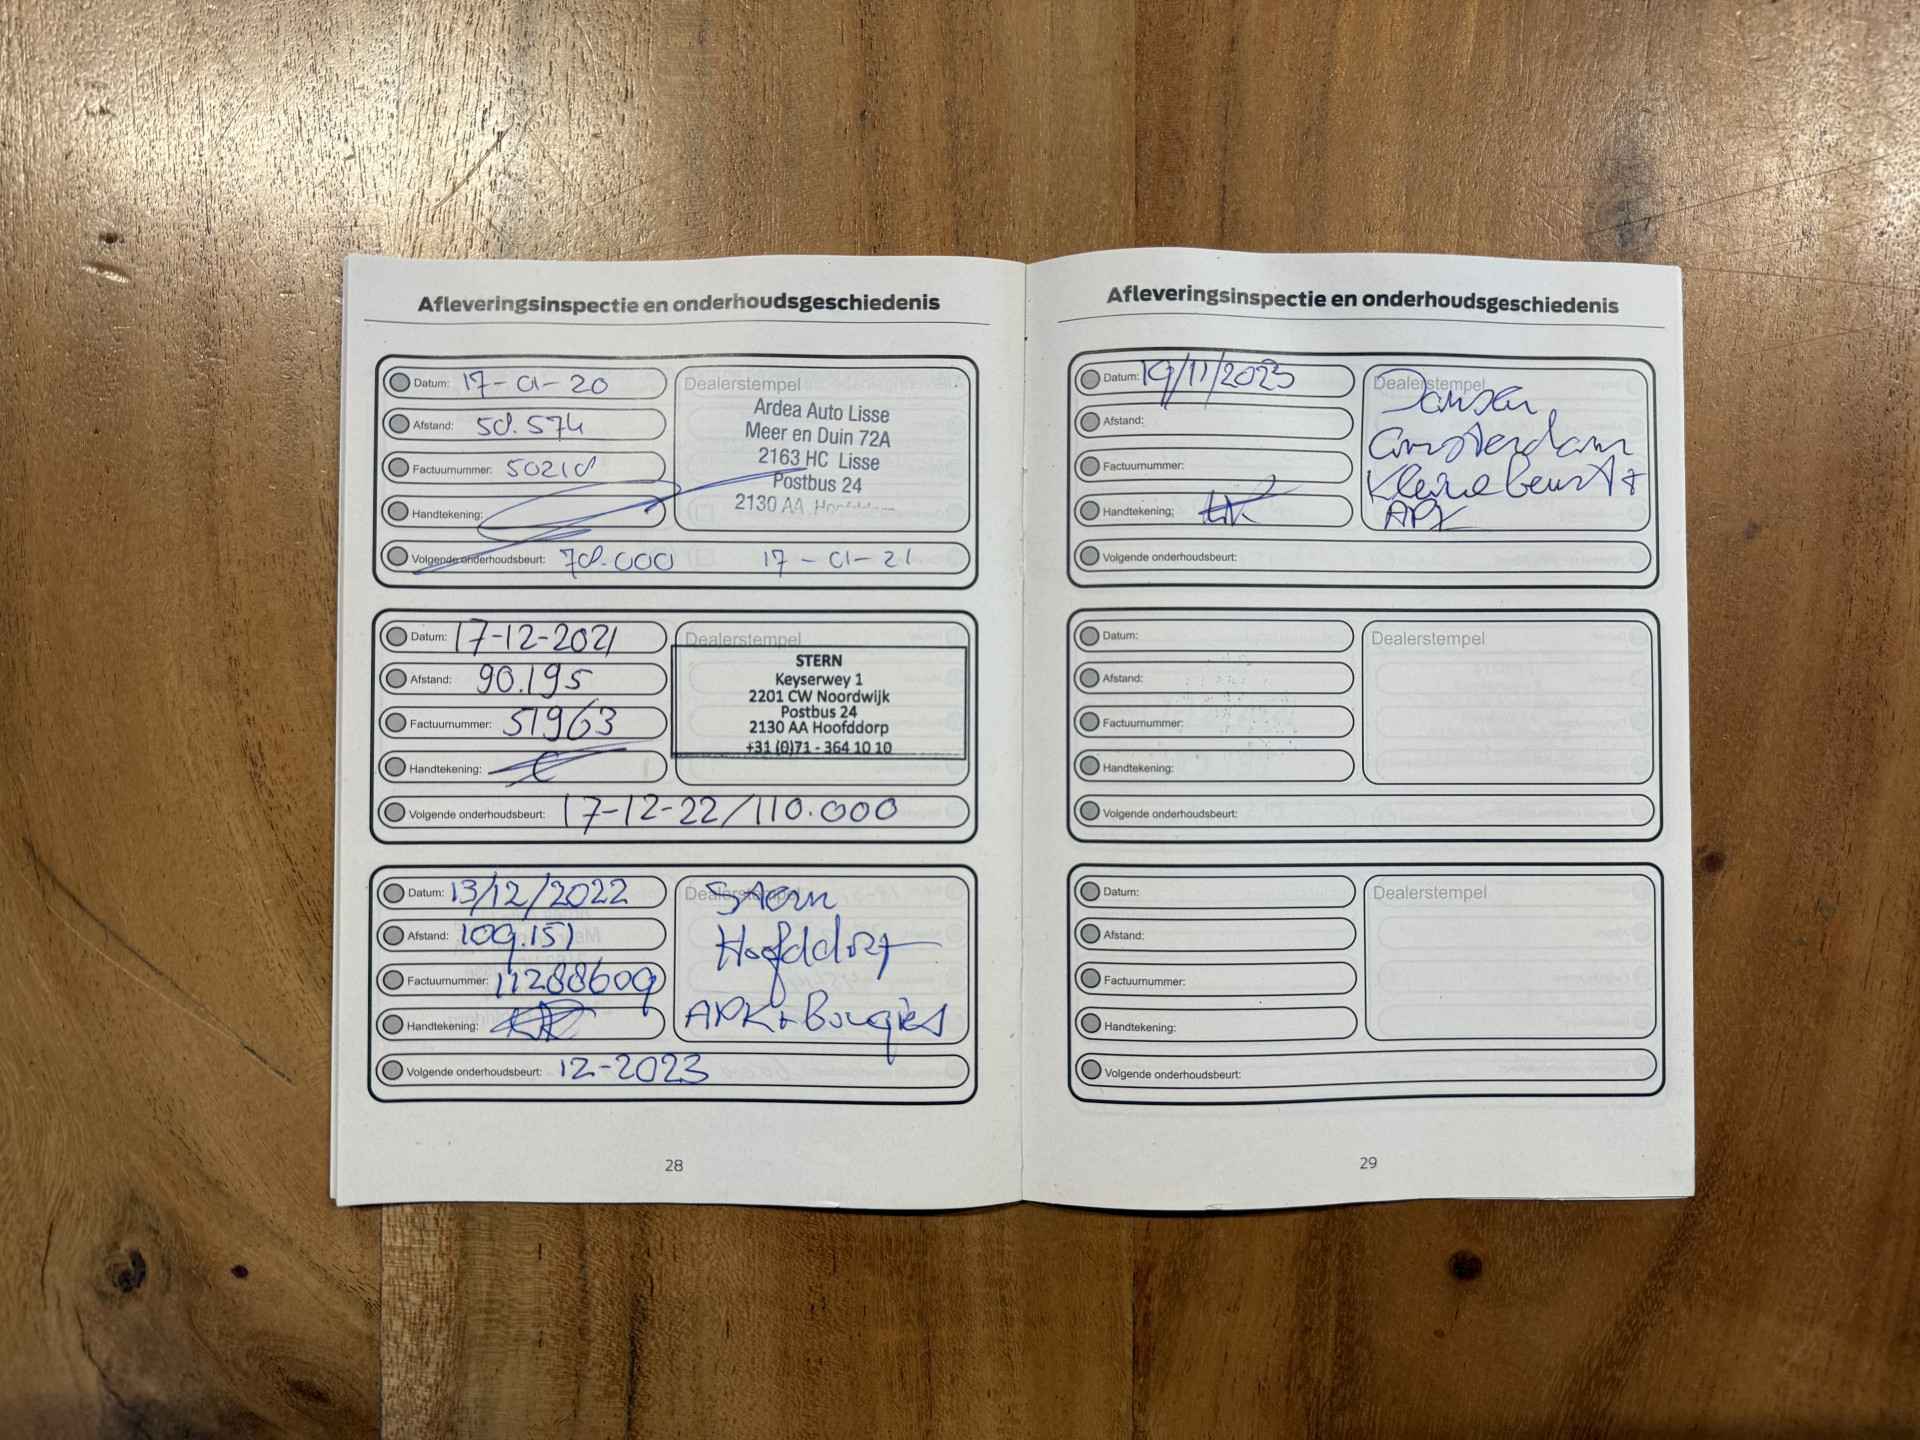 Afleveringsinspectie en onderhoudsgeschiedenis
Datum: 17-01-20
Afstand: 58.574
Factuurnummer: 50218
Handtekening:
Volgende onderhoudsbeurt: 78.000 17-01-21
Dealerstempel
Ardea Auto Lisse
Meer en Duin 72A
2163 HC Lisse
Postbus 24
2130 AA Hoofddorp
Datum: 17-12-2021
Afstand: 90.195
Factuurnummer: 51963
Handtekening:
Volgende onderhoudsbeurt: 17-12-22/110.000
Dealerstempel
STERN
Keyserwey 1
2201 CW Noordwijk
Postbus 24
2130 AA Hoofddorp
+31 (0)71 - 364 10 10
Datum: 13/12/2022
Afstand: 109.151
Factuurnummer: 11288609
Handtekening:
Volgende onderhoudsbeurt: 12-2023
Dealerstempel
Stern
Hoofddorp
APK + Bougies
28
Afleveringsinspectie en onderhoudsgeschiedenis
Datum: 19/11/2023
Afstand:
Factuurnummer:
Handtekening:
Volgende onderhoudsbeurt:
Dealerstempel
Jansen
Amsterdam
Kleine beurt +
APK
Datum:
Afstand:
Factuurnummer:
Handtekening:
Volgende onderhoudsbeurt:
Dealerstempel
Datum:
Afstand:
Factuurnummer:
Handtekening:
Volgende onderhoudsbeurt:
Dealerstempel
29